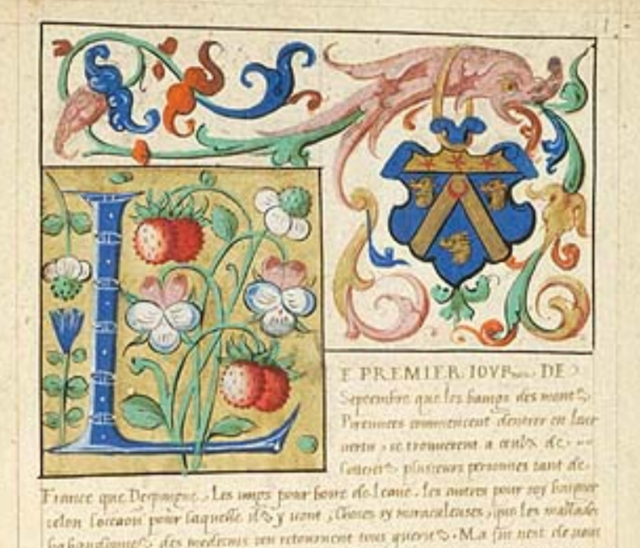 L
E PREMIER IOVR DE
Septembre que les baings des mont
Pirennees commencent dentrer en leur
vertu, se trouuerent a ceulx de
plusieurs personnes tant de
France que Despaigne, Les ungs pour boire de leaue, les autres pour soy baigner
selon loccasion pour laquelle ilz y vont, choses sy miraculeuses, que les mallades
habandonnez des medecins sen retournent tous gueriz. Ma fin nest de vous